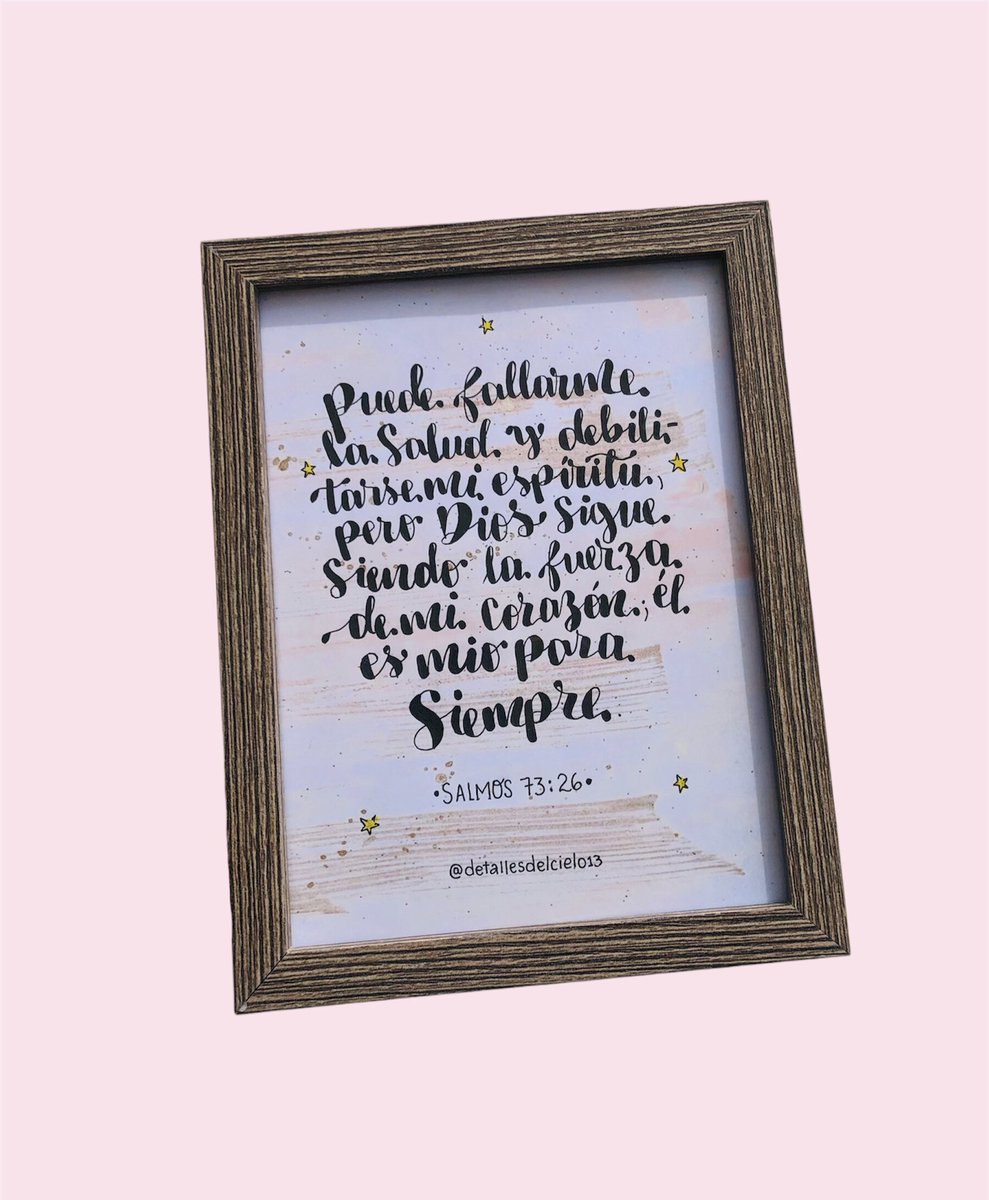 Puede fallarme
la Salud y debili-
tarse mi espíritu,
pero Dios sigue
siendo la fuerza
de mi corazón; él
es mio para
Siempre.
•SALMOS 73:26•
@detallesdelcielo13